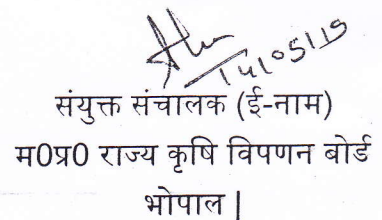 14/05/19
संयुक्त संचालक (ई-नाम)
म0प्र0 राज्य कृषि विपणन बोर्ड
भोपाल |